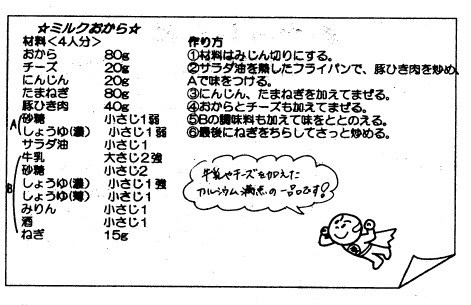 ☆ミルクおから☆
材料<4人分>
おから 80g
チーズ 20g
にんじん 20g
たまねぎ 80g
豚ひき肉 40g
A 砂糖 小さじ1弱
しょうゆ(濃) 小さじ1弱
サラダ油 小さじ1
B 牛乳 大さじ2強
砂糖 小さじ2
しょうゆ(濃) 小さじ1強
しょうゆ(薄) 小さじ1
みりん 小さじ1
酒 小さじ1
ねぎ 15g
作り方
①材料はみじん切りにする。
②サラダ油を熱したフライパンで、豚ひき肉を炒め、
Aで味をつける。
③にんじん、たまねぎを加えてまぜる。
④おからとチーズも加えてまぜる。
⑤Bの調味料も加えて味をととのえる。
⑥最後にねぎをちらしてさっと炒める。
牛乳やチーズを加えた
カルシウム満点の一品です!